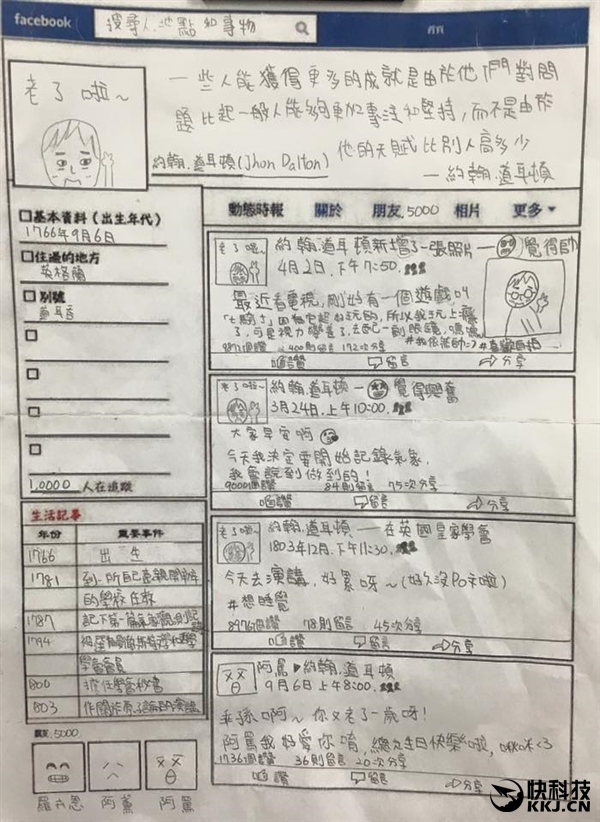 facebook
搜尋人.地點和事物
首頁
老了啦~
一些人能獲得更多的成就是由於他們對問
題比起一般人能夠更加專注和堅持,而不是由於
他的天賦比別人高多少
—約翰.道耳頓
約翰.道耳頓(Jhon Dalton)
動態時報 關於 朋友5000 相片 更多
基本資料(出生年代)
1766年9月6日
住過的地方
英格蘭
別號
道耳吞
1,0000 人在追蹤
生活記事
年份 重要事件
1766 出生
1781 到一所自己表親開辦
的學校任教
1787 記下第一篇氣象觀測記
1794
學會會員
800 擔任學會秘書
803
朋友 5000
阿薰 阿罵
老了啦~
約翰.道耳頓新增了一張照片— 覺得帥
4月2日,下午7:50.
最近看電視,剛好有一個遊戲叫
了,可是視力變差了,去配一副眼鏡,嗚嗚
#我依舊帥:) #喜歡自拍
172次分享
讚 留言 分享
老了啦~
約翰.道耳頓— 覺得興奮
3月24日,上午10:00.
大家早安啊
今天我決定要開始記錄氣象,
我會說到做到的!
9000個讚 84則留言 75次分享
讚 留言 分享
老了啦~
約翰.道耳頓—在英國皇家學會
1803年12月,下午11:30.
今天去演講,好累呀~(好久沒Po文啦)
#想睡覺
8976個讚 78則留言 45次分享
讚 留言 分享
阿罵▶約翰.道耳頓
9月6日上午8:00.
乖孫啊~你又老了一歲呀!
阿罵我好愛你唷,總之生日快樂啦,啾咪<3
1736個讚 36則留言 20次分享
讚 留言 分享
快科技
KKJ.CN